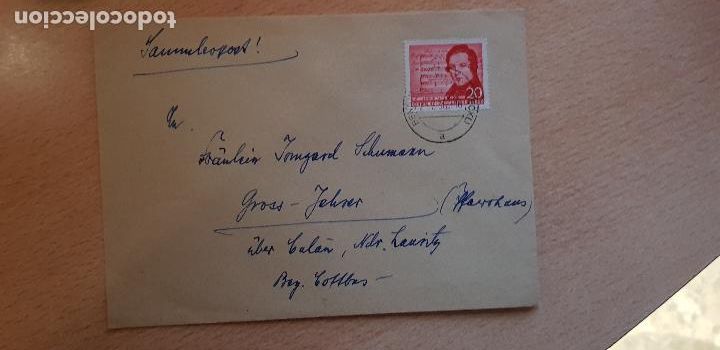 todocoleccion
Sammlerpost!
20
An
Fräulein Irmgard Schumann
Gross-Jehser (Pfarrhaus)
über Calau, Ndr. Lausitz
Bez. Cottbus-